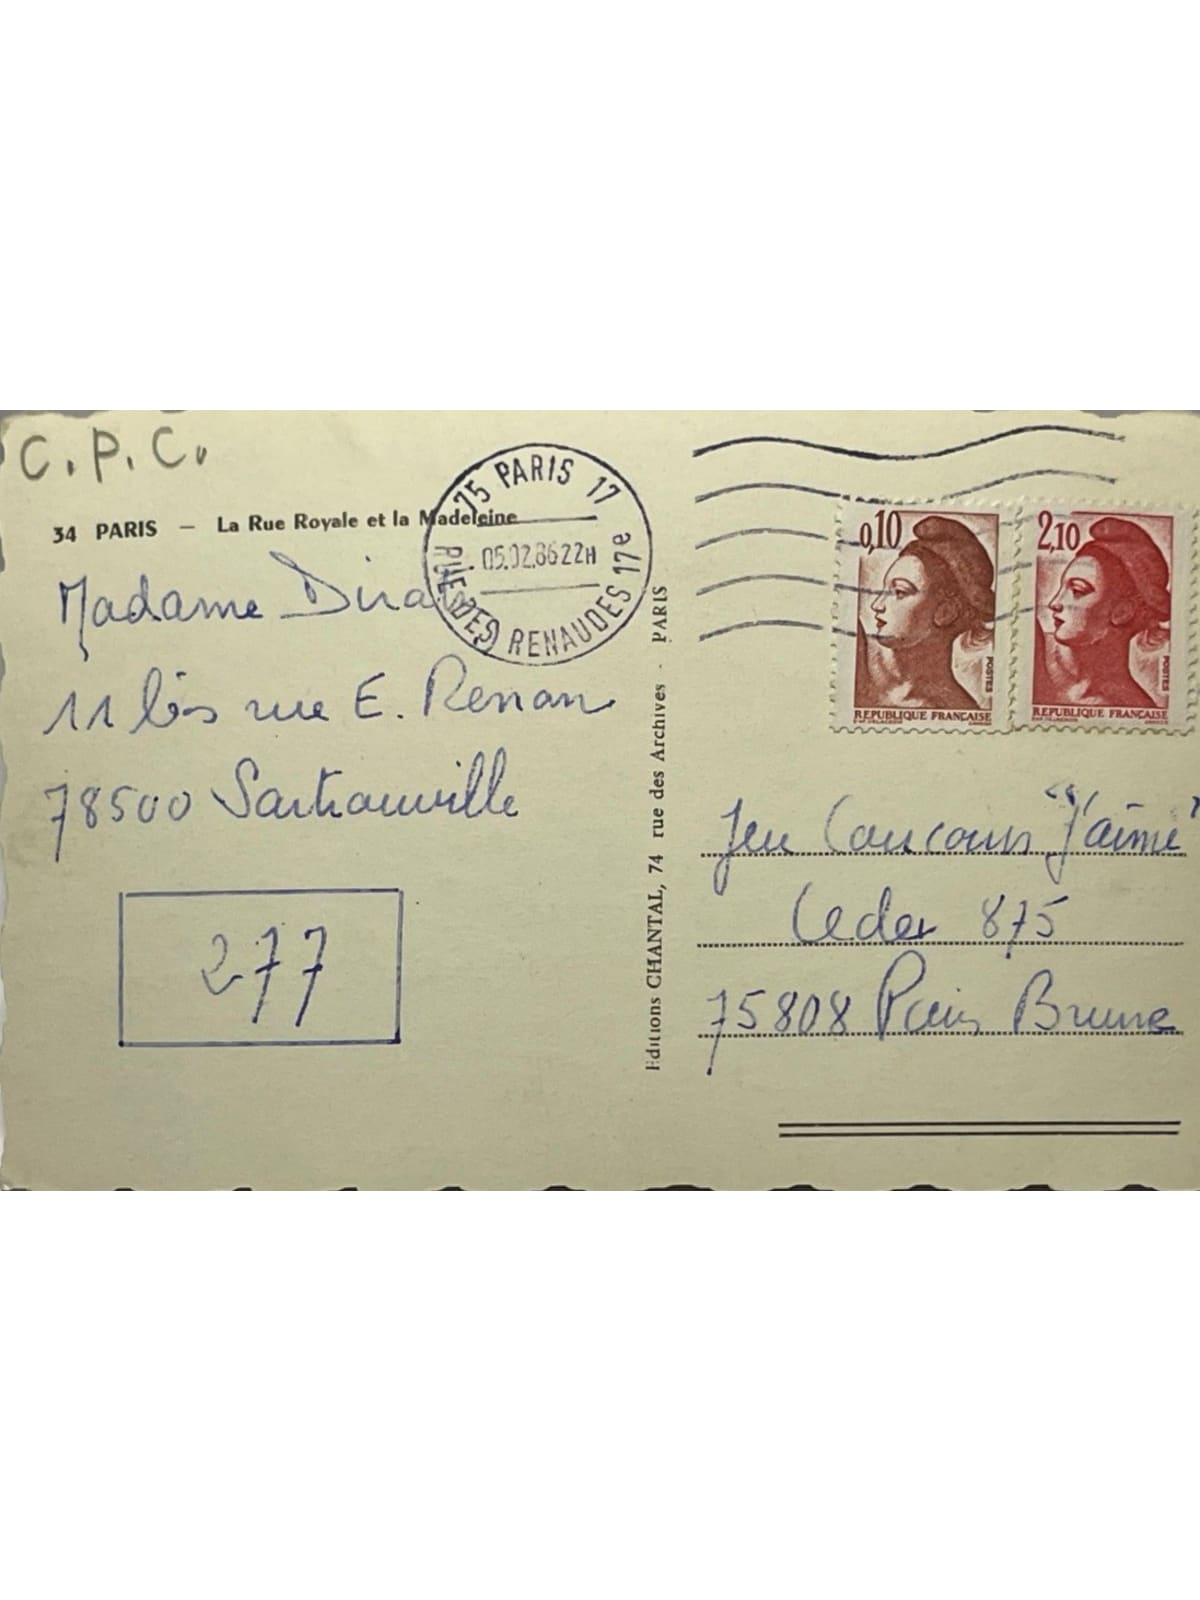 C.P.C.
34 PARIS — La Rue Royale et la Madeleine
75 PARIS 17
05.02.86 22H
RUE DES RENAUDES 17e
Madame
11 bis rue E. Renan
78500 Sartrouville
277
Editions CHANTAL, 74 rue des Archives - PARIS
0,10
POSTES
REPUBLIQUE FRANÇAISE
2,10
POSTES
REPUBLIQUE FRANÇAISE
Jeu Concours "J'aime"
Cedex 875
75808 Paris Brune